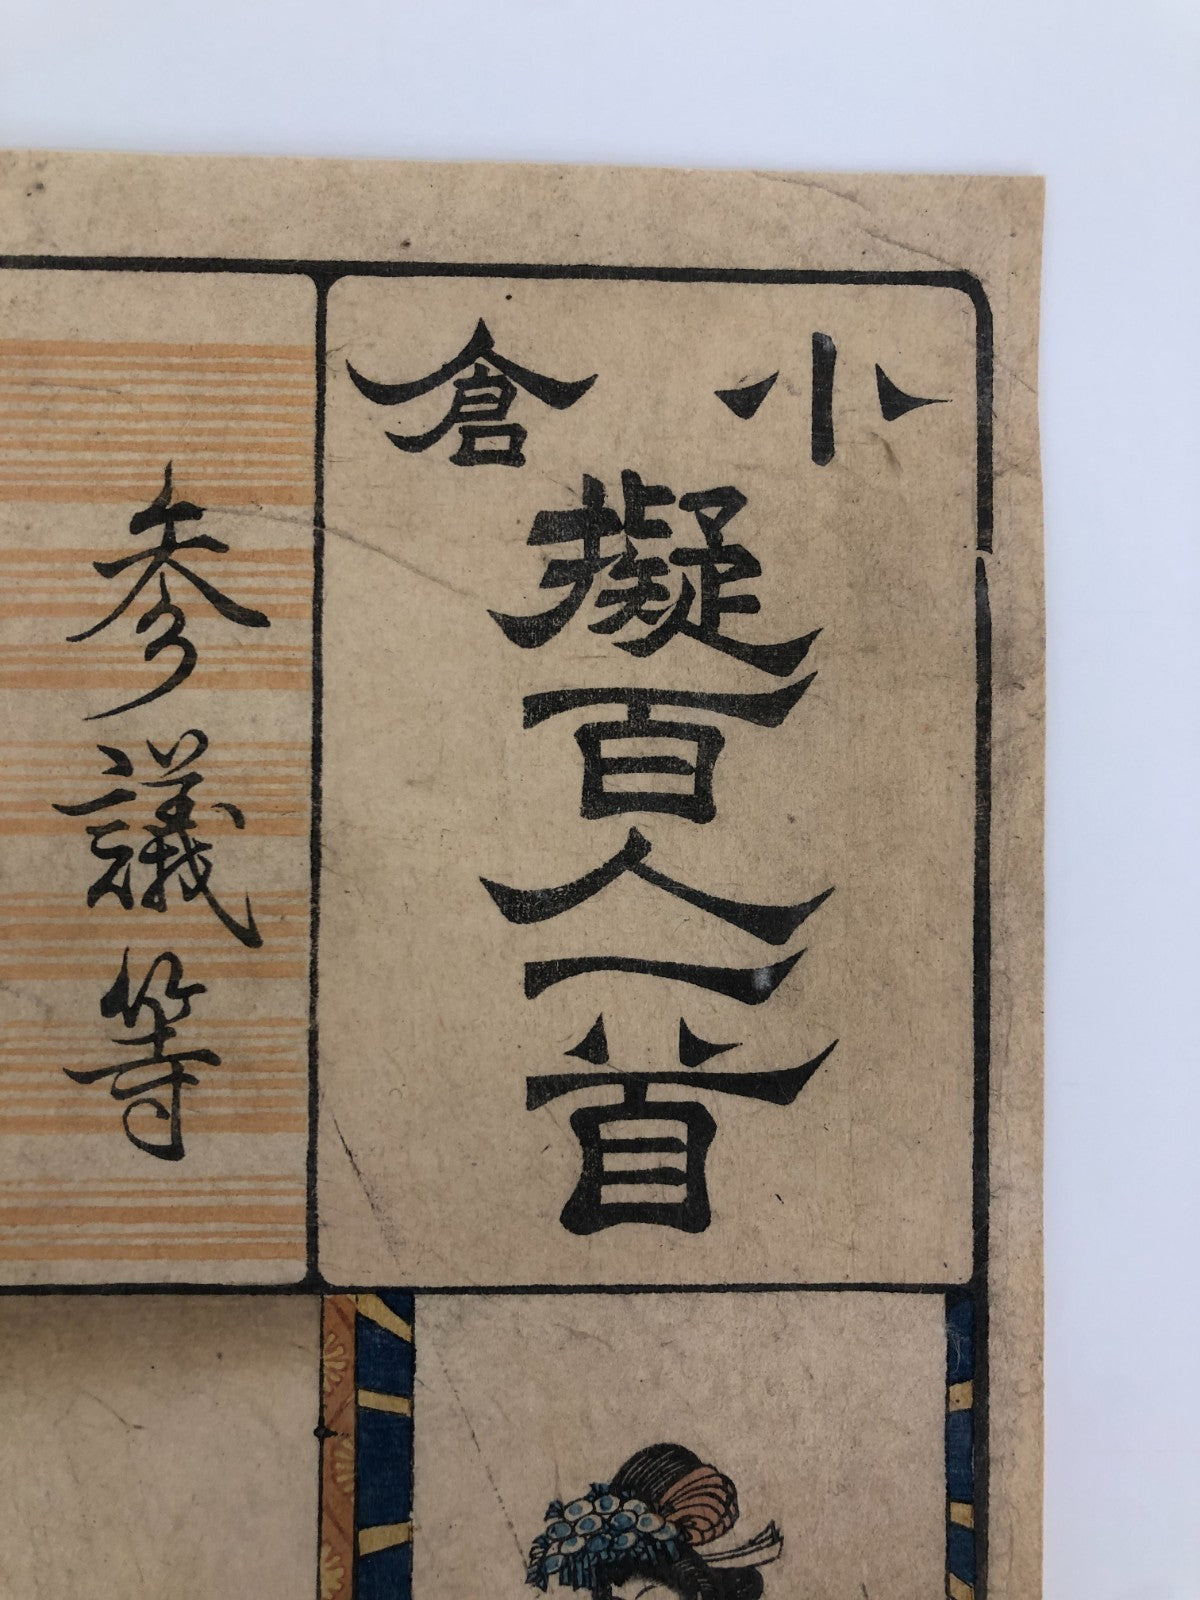 小倉
擬百人一首
参議等